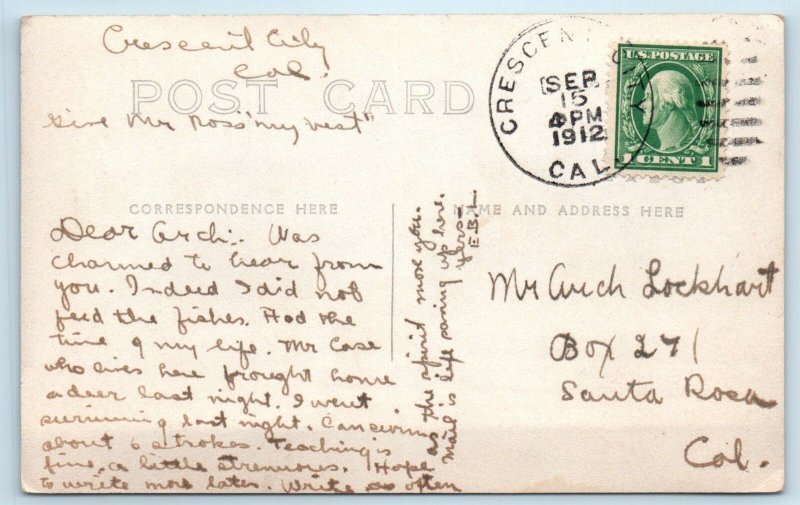 Crescent City
Cal.
POST CARD
Give Mr Ross "my best"
CRESCENT CITY
SEP
15
4 PM
1912
CAL.
U.S. POSTAGE
1 CENT 1
CORRESPONDENCE HERE
NAME AND ADDRESS HERE
Dear Arch:. Was
charmed to hear from
you. Indeed I did not
feed the fishes. Had the
time of my life. Mr Case
who lives here brought home
a deer last night. I went
swimming last night. Can swim
about 6 strokes. Teaching is
fine, a little strenuous. Hope
to write more later. Write as often
as the spirit moves you.
Mail is life saving up here.
Yers—
E.B.L.
Mr Arch Lockhart
Box 271
Santa Rosa
Cal.